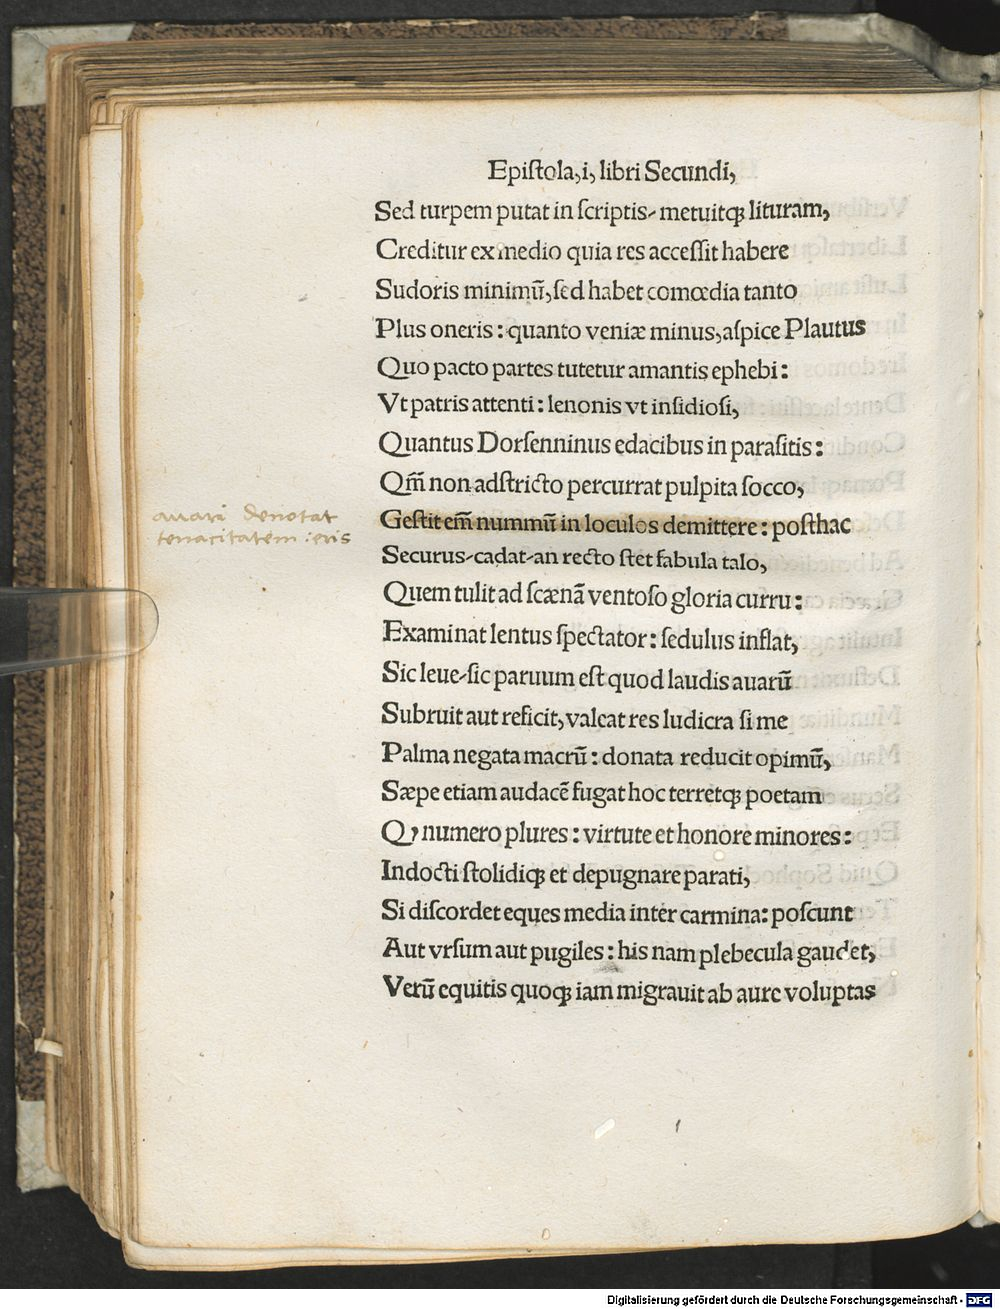 Epiſtola, i, libri Secundi,
Sed turpem putat in ſcriptis- metuitqꝫ lituram,
Creditur ex medio quia res acceſſit habere
Sudoris minimū, ſed habet comœdia tanto
Plus oneris: quanto veniæ minus, aſpice Plautus
Quo pacto partes tutetur amantis ephebi:
Vt patris attenti: lenonis vt inſidioſi,
Quantus Dorſenninus edacibus in paraſitis:
Qm̄ non adſtricto percurrat pulpita ſocco,
Geſtit em̄ nummū in loculos demittere: poſthac
Securus-cadat-an recto ſtet fabula talo,
Quem tulit ad ſcænā ventoſo gloria curru:
Examinat lentus ſpectator: ſedulus inflat,
Sic leue-ſic paruum eſt quod laudis auarū
Subruit aut reficit, valeat res ludicra ſi me
Palma negata macrū: donata reducit opimū,
Sæpe etiam audacē fugat hoc terretqꝫ poetam
Qꝫ numero plures: virtute et honore minores:
Indocti ſtolidiqꝫ et depugnare parati,
Si diſcordet eques media inter carmina: poſcunt
Aut vrſum aut pugiles: his nam plebecula gaudet,
Verū equitis quoqꝫ iam migrauit ab aure voluptas
auari denotat
tenacitatem : eris
Digitalisierung gefördert durch die Deutsche Forschungsgemeinschaft - DFG